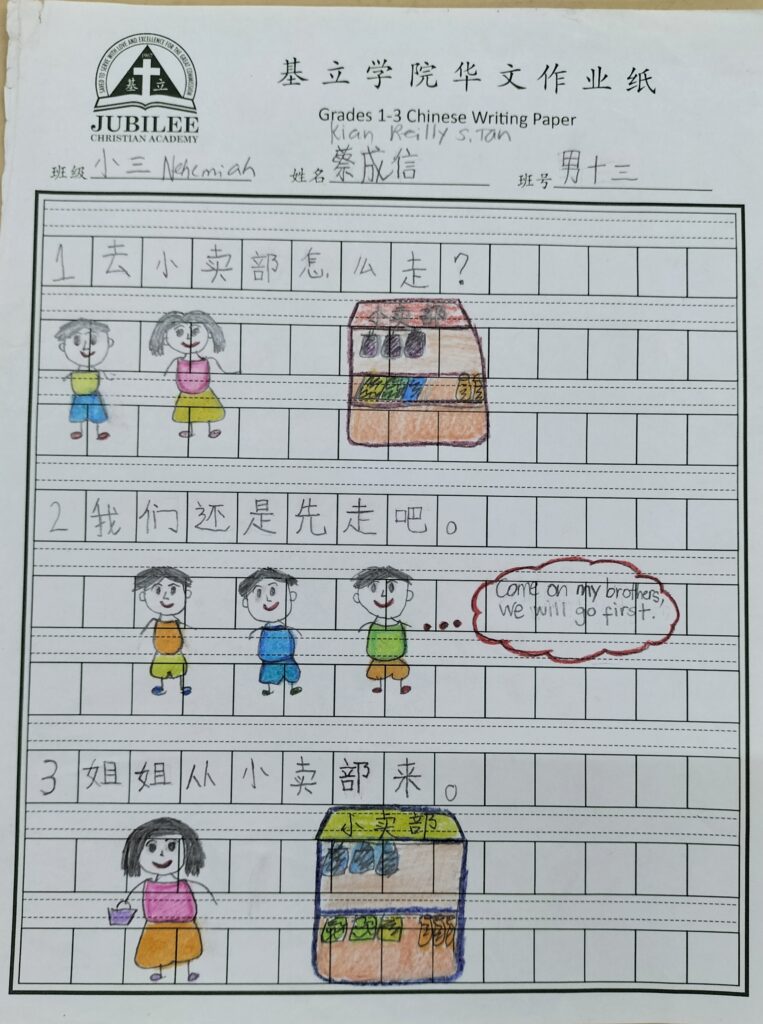 SAVED TO SERVE WITH LOVE AND EXCELLENCE FOR THE GREAT COMMISSION
基 立
JUBILEE
CHRISTIAN ACADEMY
基立学院华文作业纸
Grades 1-3 Chinese Writing Paper
Kian Reilly S. Tan
班级 小三 Nehemiah 姓名 蔡成信 班号 男十三
1 去小卖部怎么走?
小卖部
2 我们还是先走吧。
Come on my brothers,
we will go first.
3 姐姐从小卖部来。
小卖部